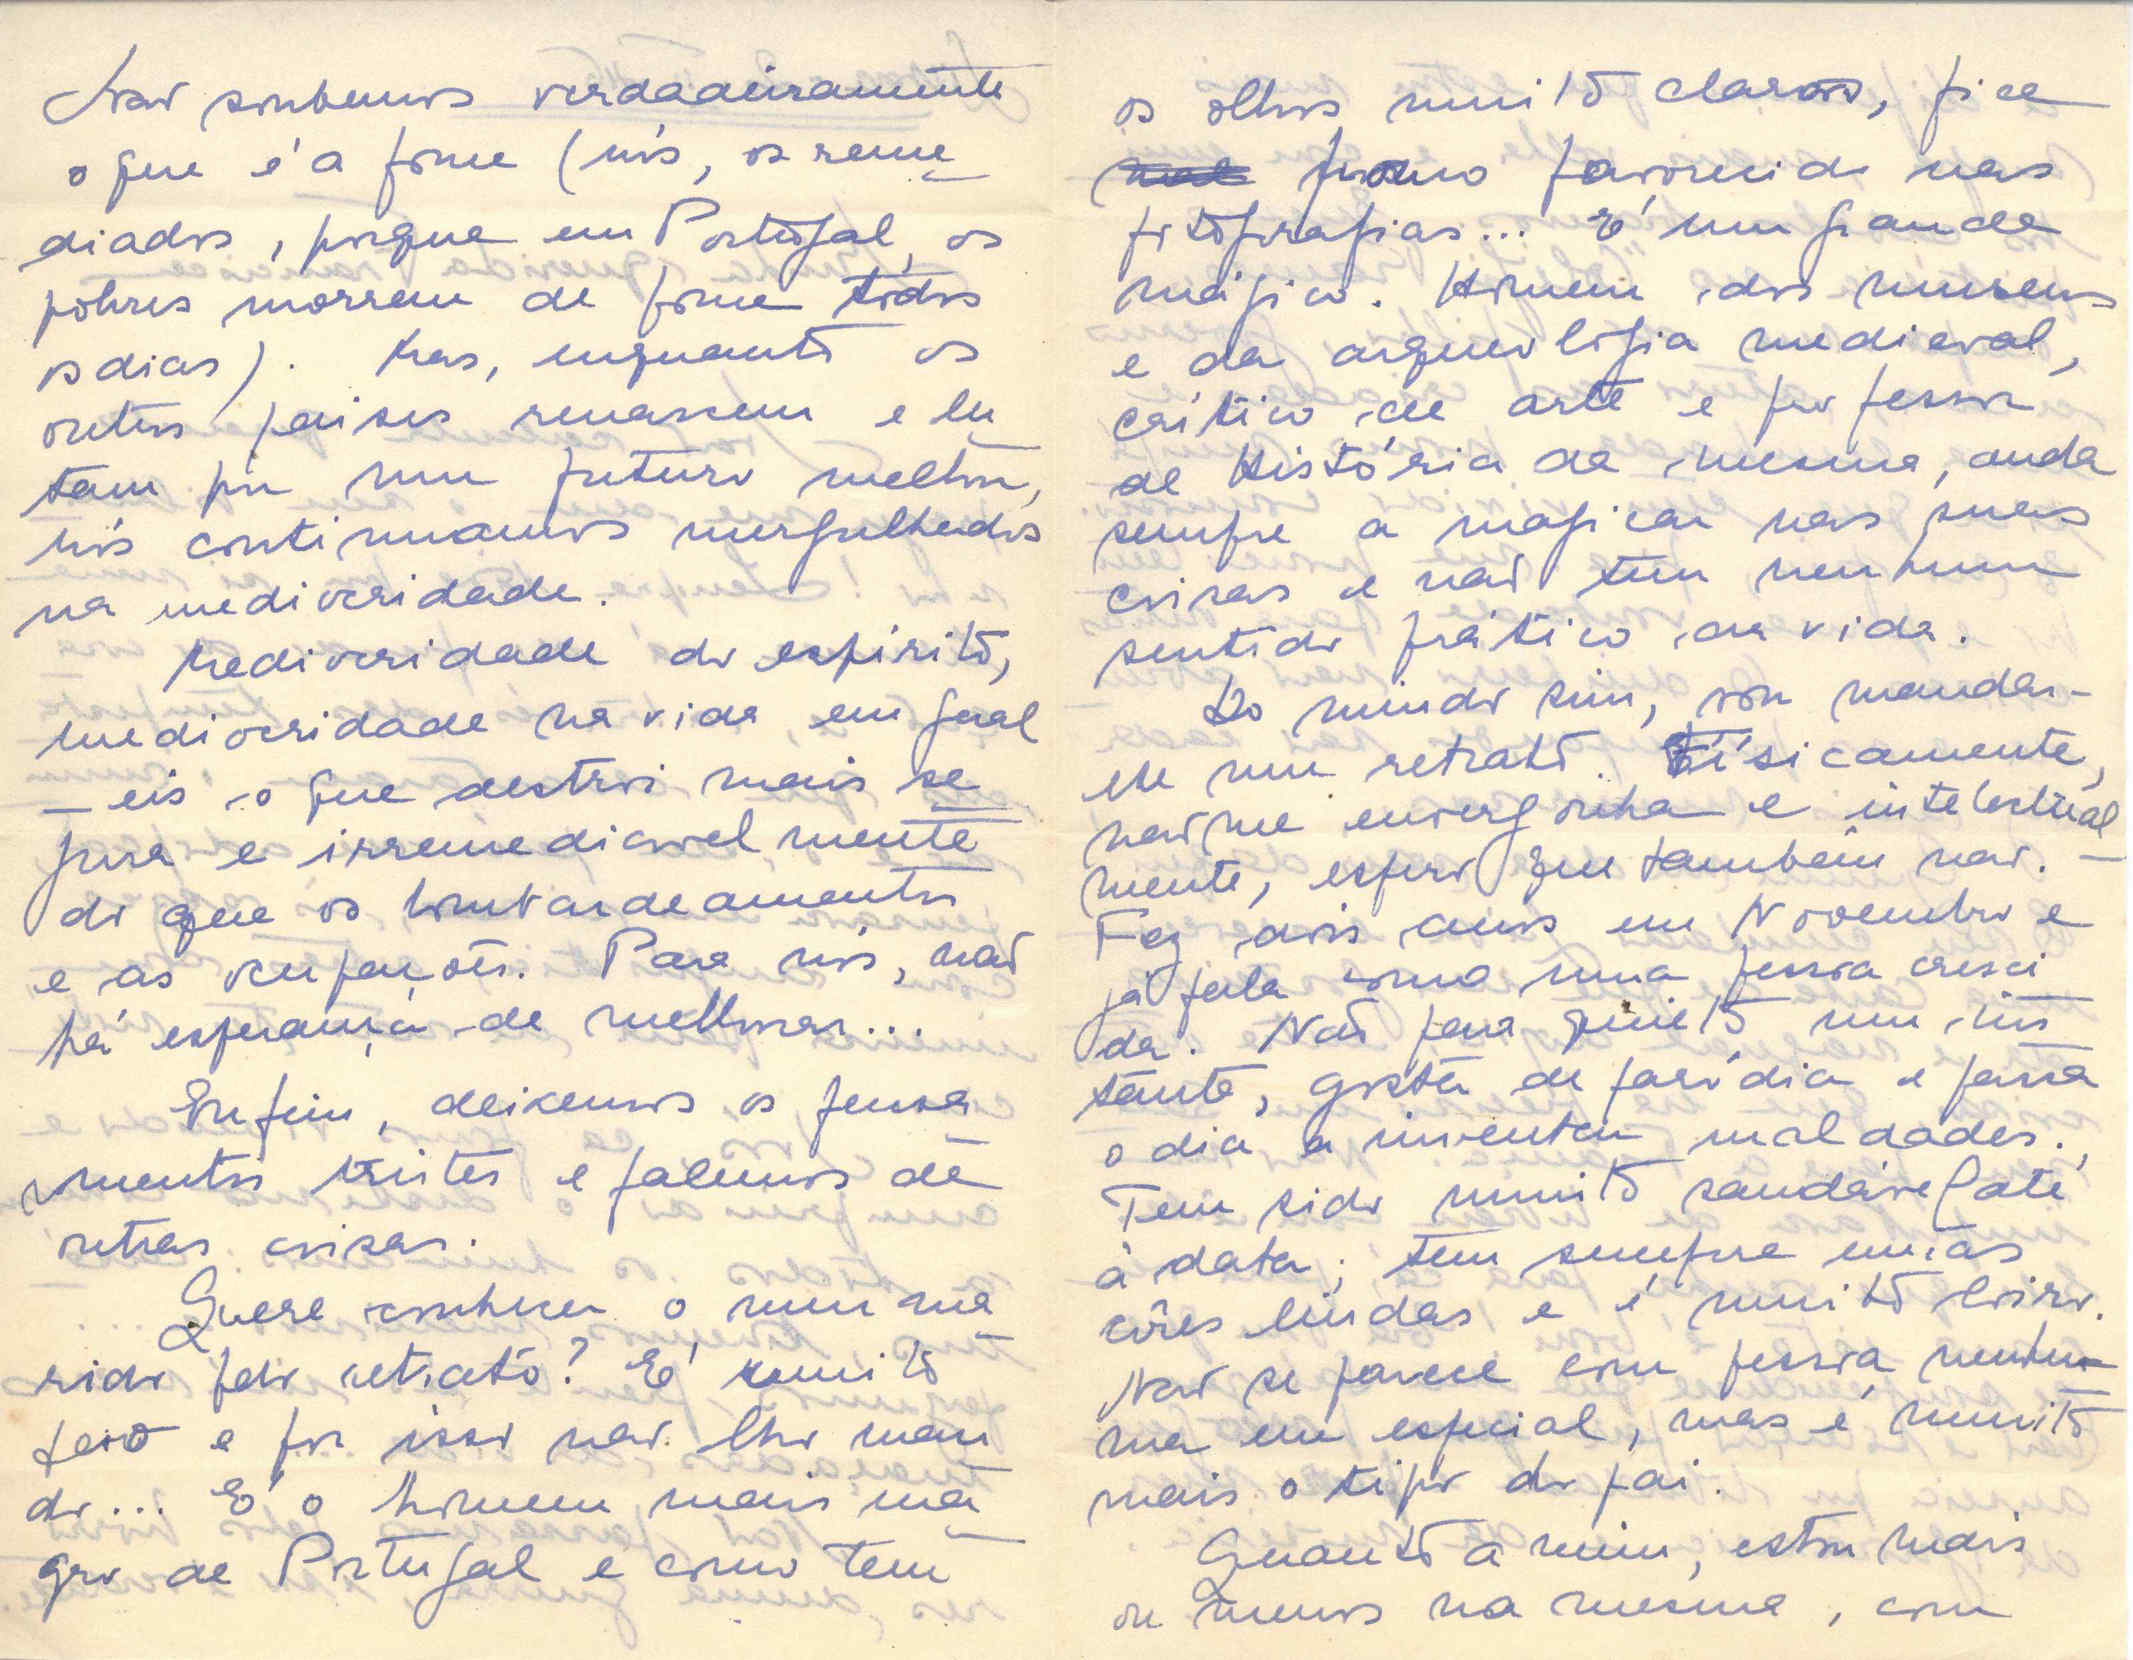 Não soubemos verdadeiramente
o que é a fome (nós, os reme
diados, porque em Portugal, os
pobres morrem de fome todos
os dias). Mas, enquanto os
outros paises renascem e lu
tam por um futuro melhor,
nós continuamos mergulhados
na mediocridade.
Mediocridade do espírito,
mediocridade na vida, em geral
— eis o que destroi mais se
gura e irremediavelmente
do que os bombardeamentos
e as ocupações. Para nós, não
há esperança de melhorar...
Enfim, deixemos os pensa
mentos tristes e falemos de
outras coisas.
Quere conhecer o meu ma
rido pelo retrato? É muito
feio e por isso não lho man
do... É o homem mais ma
gro de Portugal e como tem
os olhos muito claros, fica
pouco favorecido nas
fotografias... É um grande
mágico. Homem dos museus
e da arqueologia medieval,
crítico de arte e professor
de História da mesma, anda
sempre a magicar nas suas
coisas e não tem nenhum
sentido prático da vida.
Do miudo sim, vou mandar-
lhe um retrato. Físicamente,
não me envergonha e intelectual
mente, espero que tambêm não. —
Fez dois anos em Novembro e
já fala como uma pessoa cresci
da. Não para quieto um ins
tante, gosta de paródia e passa
o dia a inventar maldades.
Tem sido muito saudável até
à data; tem sempre umas
côres lindas e é muito loiro.
Não se parece com pessoa nenhu
ma em especial, mas é muito
mais o tipo do pai.
Quanto a mim, estou mais
ou menos na mesma, com